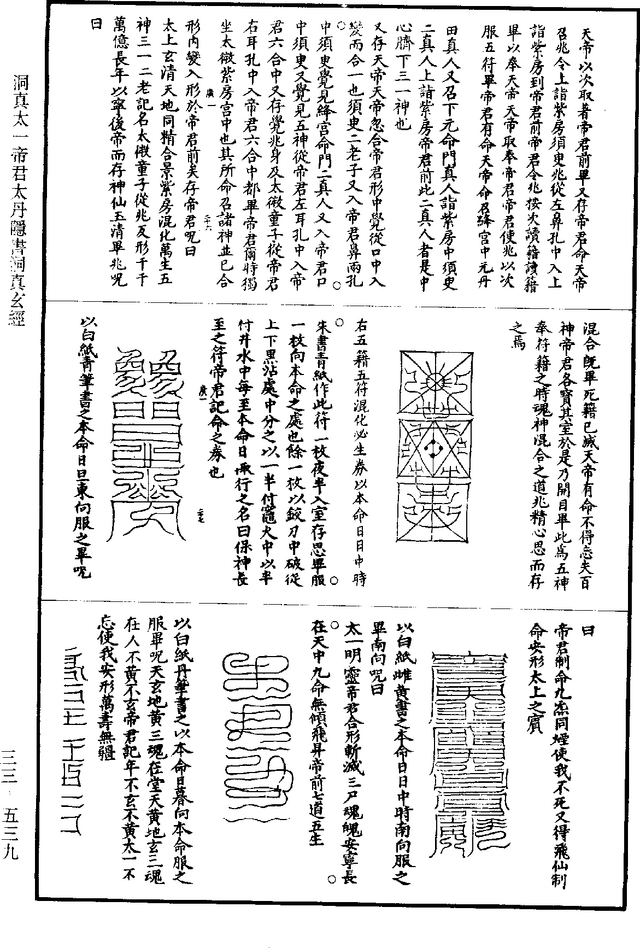 天帝以次取著帝君前畢又存帝君命天帝
召兆令上詣紫房須臾兆從左鼻孔中入上
詣紫房到帝君前帝君令兆按次讀籍讀籍
畢以奉天帝天帝取奉帝君帝君使兆以次
服五符畢帝君有命天帝命召絳宮中元丹
田真人又召下元命門真人詣紫房中須臾
二真人上詣紫房帝君前此二真人者是中
心臍下三一神也
又存天帝天帝忽合帝君形中覺從口中入
變而合一也須臾二老子又入帝君鼻兩孔
中須臾覺見絳宮命門二真人又入帝君口
中須臾又覺見五神從帝君左耳孔中入帝
君六合中又存覺兆身及太微童子從帝君
右耳孔中入帝君六合中都畢帝君爾時獨
坐太微紫房宮中也其所命召諸神並已合
廣一
形内變入形於帝君前矣存帝君呪曰
太上玄清天地同精合景紫房混化萬生五
神三一二老記名太微童子從兆反形千千
萬億長年以寧後帝而存神仙玉清畢兆呪
曰
混合既畢死籍已滅天帝有命不得忘失百
神帝君各寶其室於是乃開目畢此為五神
奉符籍之時魂神混合之道兆精心思而存
之焉
右五籍五符混化必生券以本命日日中時
朱書青紙作此符一枚夜半入室存思畢服
一枚向本命之處也餘一枚以鉸刀中破從
上下黑沾處中分之以一半付竈火中以半
付井水中每至本命日兩行之名曰保神長
至之符帝君記命之券也
廣一
以白紙青筆書之本命日旦東向服之畢呪
曰
帝君制命九炁同煙使我不死又得飛仙制
命安形太上之賓
以白紙雌黃書之本命日日中時南向服之
畢南向呪曰
太一明靈帝君合形斬滅三尸魂魄安寧長
在天中九命無傾飛昇帝前七道五生
以白紙丹筆書之以本命日暮向本命服之
服畢呪天玄地黃三魂在堂天黃地玄三魂
在人不黃不玄帝君記年不玄不黃太一不
忘使我安形萬壽無疆
洞真太一帝君太丹隱書洞真玄經
三三－五三九